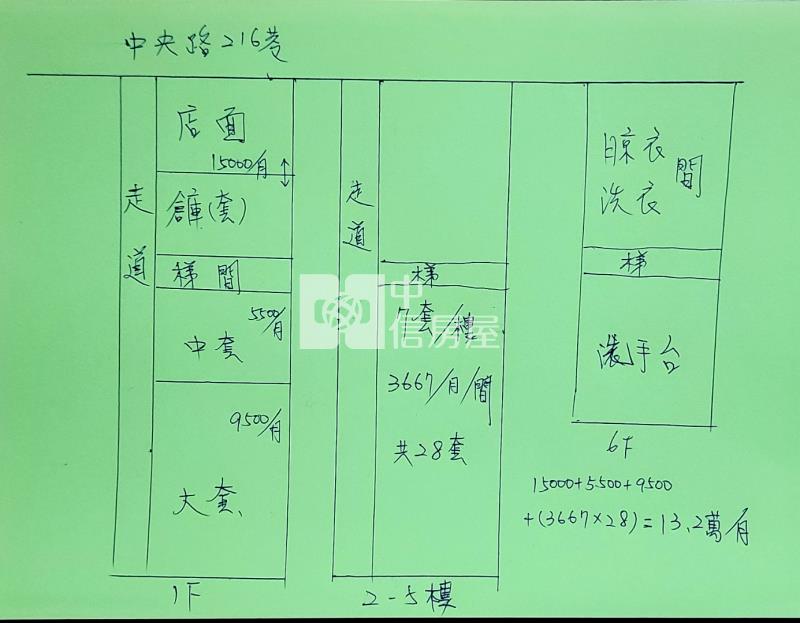 中央路216巷
走道
店面
15000/月
倉庫(套)
梯間
5500/月
中套
9500/月
大套
1F
走道
梯
7套/樓
3667/月/間
共28套
2-5樓
晾衣
洗衣
間
梯
洗手台
6F
15000+5500+9500
+(3667×28)=13.2萬/月
中信房屋